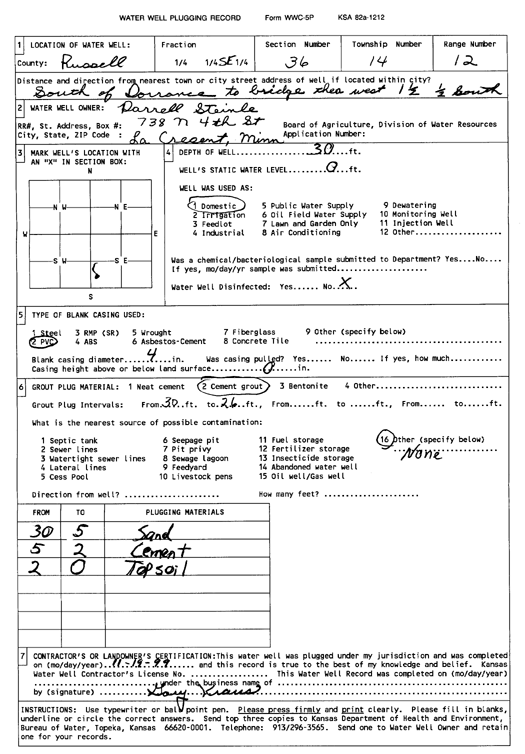 WATER WELL PLUGGING RECORD Form WWC-5P KSA 82a-1212
1 LOCATION OF WATER WELL: Fraction Section Number Township Number Range Number
County: Russell 1/4 1/4 SE 1/4 36 14 12
Distance and direction from nearest town or city street address of well if located within city?
South of Dorrance to bridge then west 1½ ½ South
2 WATER WELL OWNER: Darrell Steinle
RR#, St. Address, Box #: 738 N 4th St Board of Agriculture, Division of Water Resources
City, State, ZIP Code : La Cresent, Minn Application Number:
3 MARK WELL'S LOCATION WITH AN "X" IN SECTION BOX:
N
N W N E
W E
S W S E
S
4 DEPTH OF WELL.....30...ft.
WELL'S STATIC WATER LEVEL...0...ft.
WELL WAS USED AS:
1 Domestic 5 Public Water Supply 9 Dewatering
2 Irrigation 6 Oil Field Water Supply 10 Monitoring Well
3 Feedlot 7 Lawn and Garden Only 11 Injection Well
4 Industrial 8 Air Conditioning 12 Other................
Was a chemical/bacteriological sample submitted to Department? Yes....No....
If yes, mo/day/yr sample was submitted....................
Water Well Disinfected: Yes...... No.X...
5 TYPE OF BLANK CASING USED:
1 Steel 3 RMP (SR) 5 Wrought 7 Fiberglass 9 Other (specify below)
2 PVC 4 ABS 6 Asbestos-Cement 8 Concrete Tile ....................
Blank casing diameter....4....in. Was casing pulled? Yes...... No...... If yes, how much.........
Casing height above or below land surface........0......in.
6 GROUT PLUG MATERIAL: 1 Neat cement 2 Cement grout 3 Bentonite 4 Other....................
Grout Plug Intervals: From.30.ft. to.26.ft., From......ft. to ......ft., From...... to......ft.
What is the nearest source of possible contamination:
1 Septic tank 6 Seepage pit 11 Fuel storage 16 Other (specify below)
2 Sewer lines 7 Pit privy 12 Fertilizer storage None
3 Watertight sewer lines 8 Sewage lagoon 13 Insecticide storage
4 Lateral lines 9 Feedyard 14 Abandoned water well
5 Cess Pool 10 Livestock pens 15 Oil well/Gas well
Direction from well? ...................... How many feet? ......................
FROM TO PLUGGING MATERIALS
30 5 Sand
5 2 Cement
2 0 Topsoil
7 CONTRACTOR'S OR LANDOWNER'S CERTIFICATION: This water well was plugged under my jurisdiction and was completed
on (mo/day/year)..11-19-99...... and this record is true to the best of my knowledge and belief. Kansas
Water Well Contractor's License No. .................. This Water Well Record was completed on (mo/day/year)
........................under the business name of ........................
by (signature) Gary Kraus
INSTRUCTIONS: Use typewriter or ball point pen. Please press firmly and print clearly. Please fill in blanks,
underline or circle the correct answers. Send top three copies to Kansas Department of Health and Environment,
Bureau of Water, Topeka, Kansas 66620-0001. Telephone: 913/296-3565. Send one to Water Well Owner and retain
one for your records.